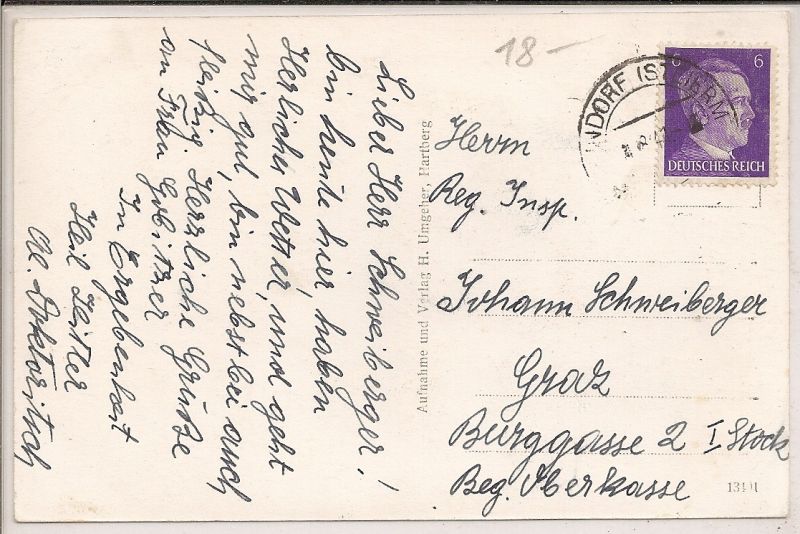 18-
Lieber Herr Schweiberger!
bin heute hier, haben
Herrliches Wetter, und geht
mir gut, bin nebst bei auch
fleißig. Herzliche Grüße
an Frau
In Ergebenheit
Heil Hitler
Aufnahme und Verlag H. Umgeher, Hartberg
NDORF (ST
ERM
6
DEUTSCHES REICH
Herrn
Reg. Insp.
Johann Schweiberger
Graz
Burggasse 2 I Stock
Reg. Oberkasse